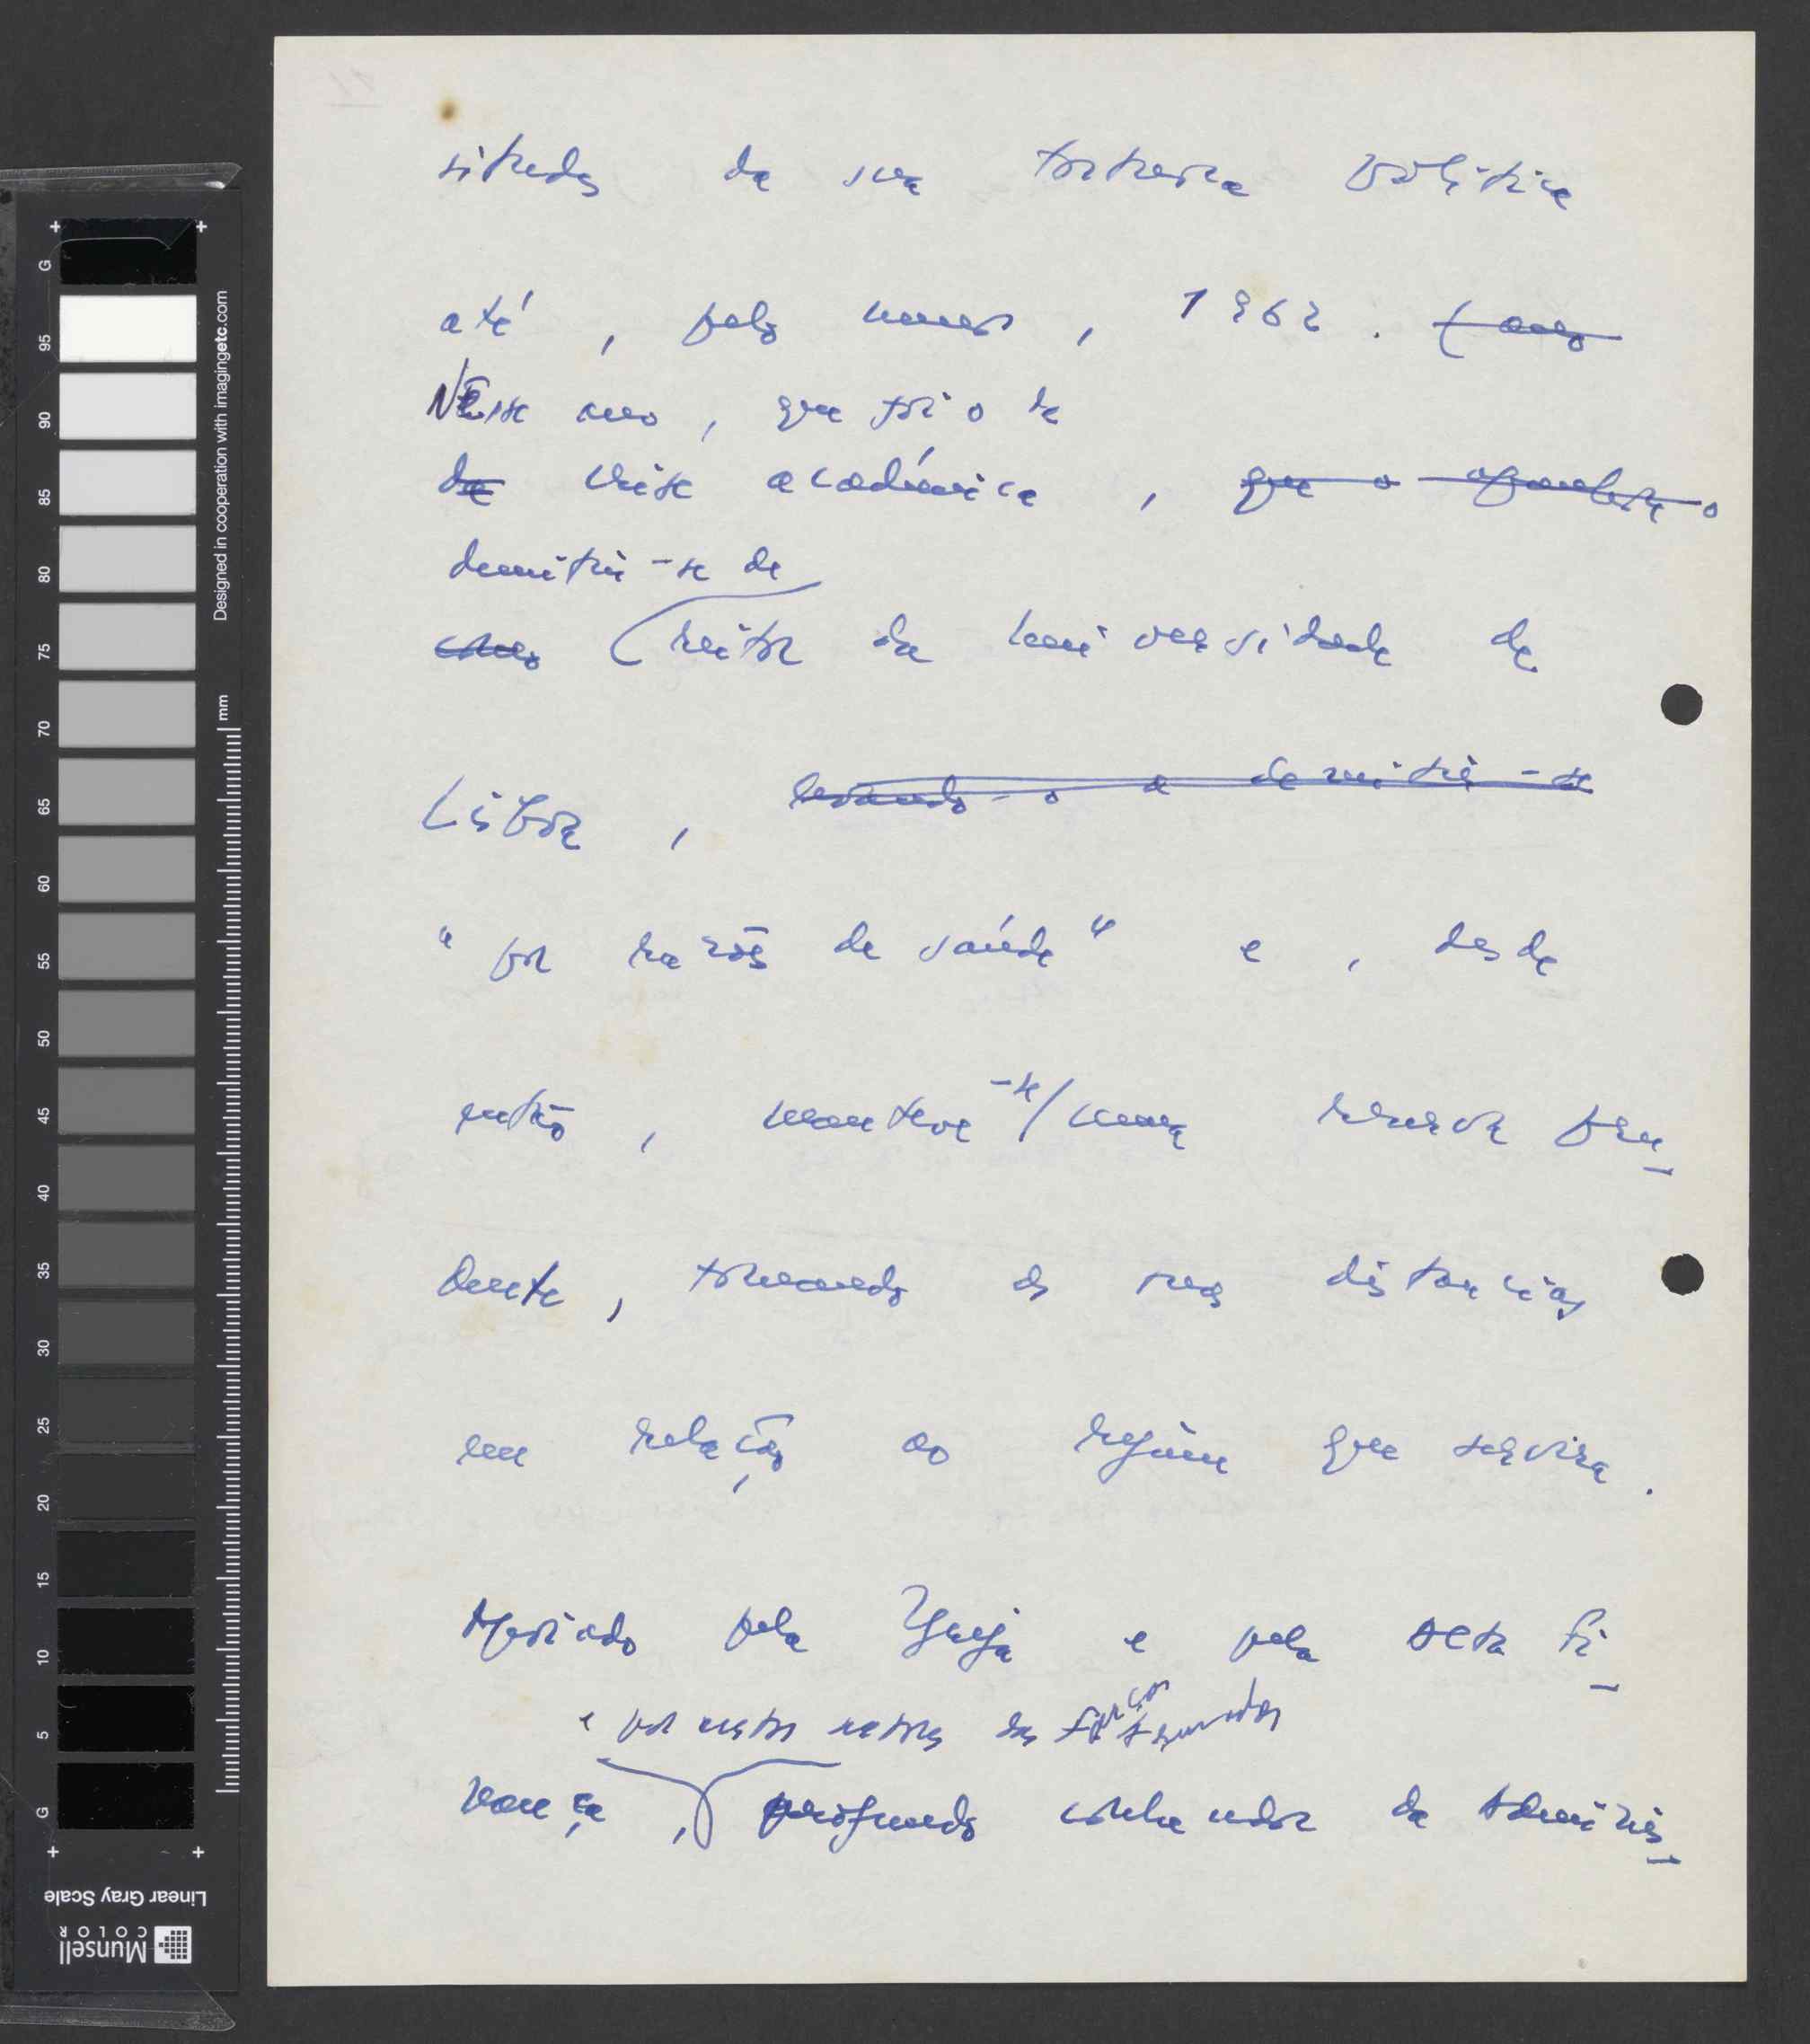 da sua política
até, pelo menos, 1962. (ano
Nesse ano, que foi o da
da crise académica, que o
demitiu-se de
como reitor da universidade de
Lisboa, levando-o a demitir-se
"por razões de saúde" e, desde
então, manteve-se/numa reserva pru-
dente, tomando as suas distancias
em relação ao regime que servira.
Apoiado pela Igreja e pela alta fi-
e por certos sectores das forças Armadas
nança, profundo conhecedor da Adminis-
G
95
90
85
80
75
70
65
60
55
50
45
40
35
30
25
20
15
10
5
G
Designed in cooperation with imagingetc.com
mm
Linear Gray Scale
Munsell
COLOR